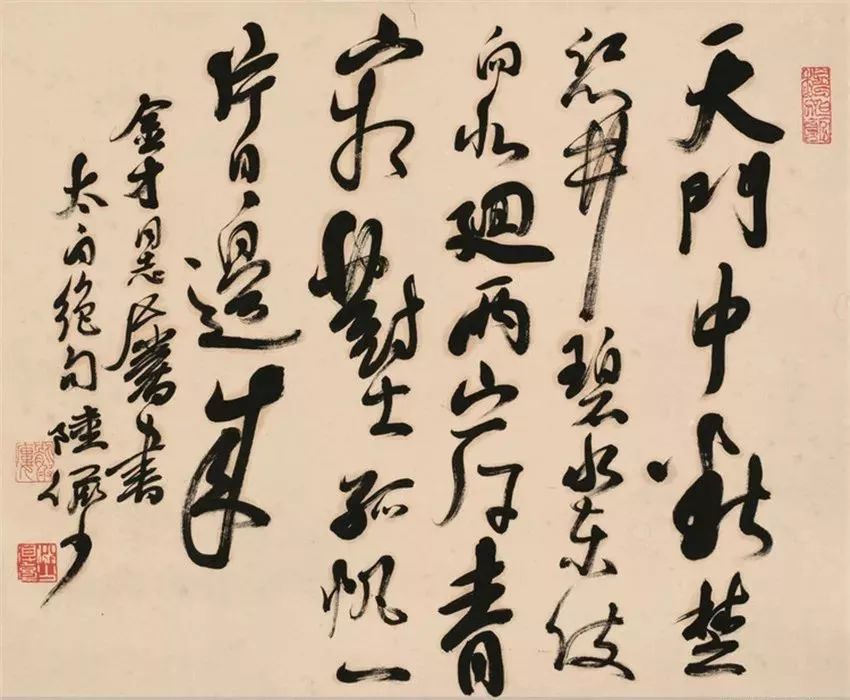 天門中斷楚
江開碧水東流
向北廻兩岸青
山相對出孤帆一
片日邊來
金才同志屬書
太白絕句陸儼少